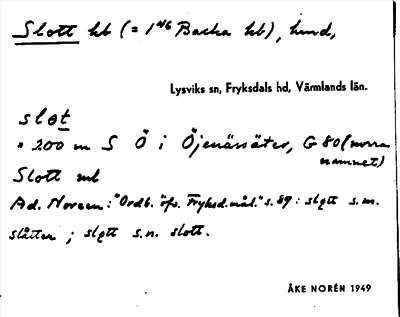 Slott ht (= 1 4/6 Backa ht), hmd,
Lysviks sn, Fryksdals hd, Värmlands län.
slot
* 200 m S Ö i Öjenässäter, G 80 (norra
namnet)
Slott ml
Ad. Noreen: "Ordb. öfv. Fryksd.mål." s. 89: slott s.m.
slåtter; slott s.n. slott.
ÅKE NORÉN 1949